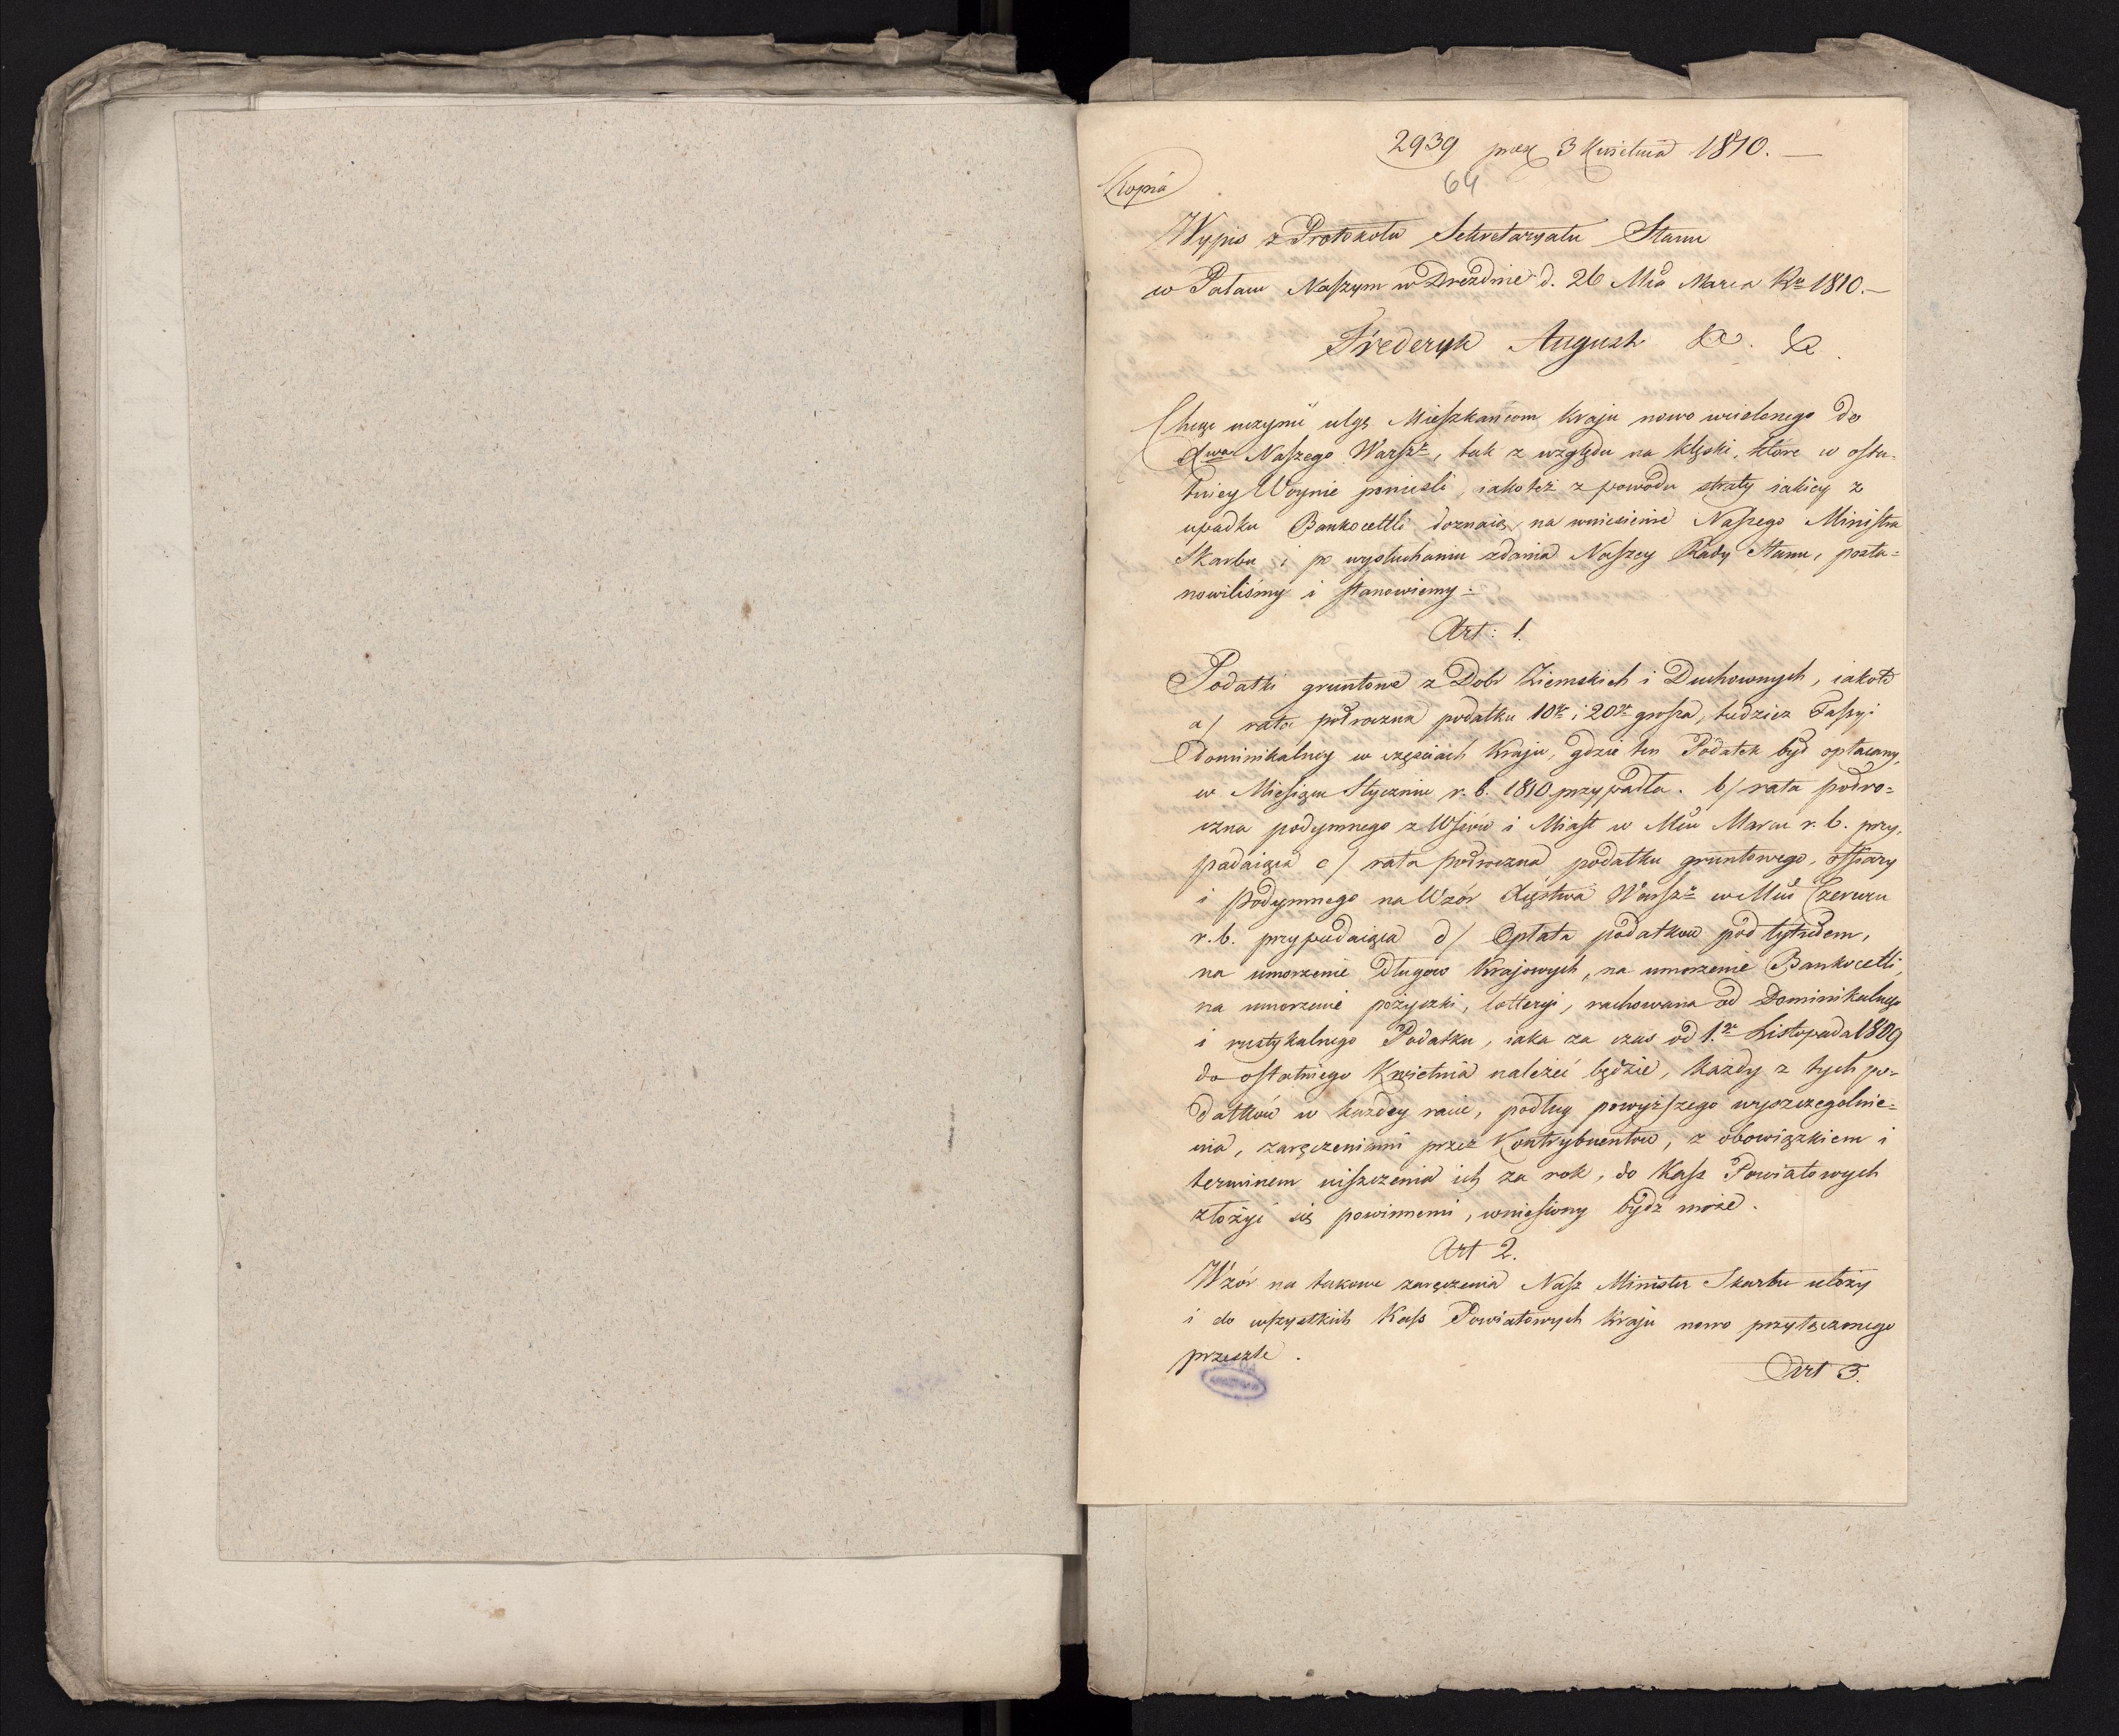 2939 prez 3 Kwietnia 1810. —
64
Kopia
Wypis z Protokołu Sekretaryatu Stanu
w Pałacu Naszym w Dreźdnie d. 26 Mca Marca Ru 1810. —
Fryderyk August &c. &c.
Chcąc uczynić ulgę Mieszkańcom Kraju nowo wcielonego do
Xwa Naszego Warszo, tak z względu na klęski, które w osta-
tniey Woynie ponieśli, iakoteż z powodu straty iakiey z
upadku Bankocettli doznaią, na wniesienie Naszego Ministra
Skarbu i po wysłuchaniu zdania Naszey Rady Stanu, posta=
nowiliśmy i stanowiemy:
Art: 1.
Podatki gruntowe z Dobr Ziemskich i Duchownych, iakoto
a/ rata połroczna podatku 10go i 20go grosza, tudzież Fassyi
Dominikalney w częściach Kraju, gdzie ten Podatek był opłacany,
w Miesiącu Styczniu r. b. 1810 przypadła. b/ rata połro=
czna podymnego z Wsiów i Miast w Mcu Marcu r. b. przy-
padaiąca c/ rata połroczna podatku gruntowego, offiary
i podymnego na Wzór Xięstwa Warszo w Mcu Czerwcu
r. b. przypadaiąca d/ Opłata podatków pod tytułem,
na umorzenie Długow Krajowych, na umorzenie Bankocetli,
na umorzenie pożyczki, lotteryi, rachowana od Dominikalnego
i rustykalnego Podatku, iaka za czas od 1go Listopada 1809
do ostatniego Kwietnia należeć będzie, każdy z tych po-
datków w każdey racie, podług powyższego wyszczegolnie=
nia, zaręczeniami przez Kontrybuentów, z obowiązkiem i
terminem uiszczenia ich za rok, do Kass Powiatowych
złożyć się powinnemi, wniesiony bydź może.
Art 2.
Wzór na takowe zaręczenia Nasz Minister Skarbu ułoży
i do wszystkich Kass Powiatowych Kraju nowo przyłączonego
przeszle.
Art 3.